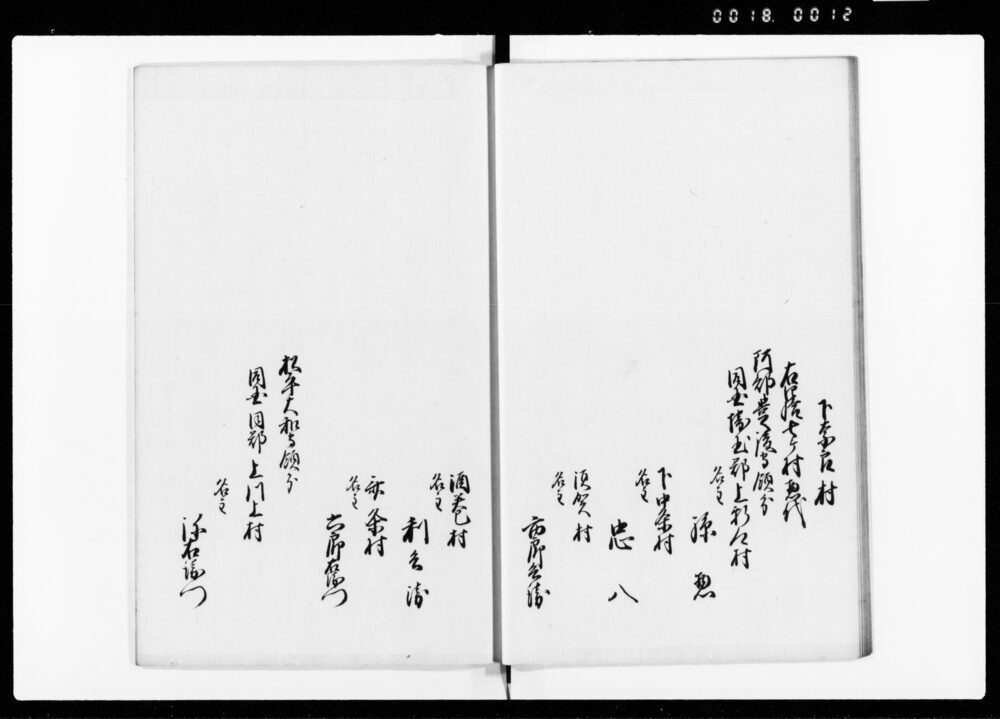 0018. 0012
下奈良村
右拾七ヶ村惣代
阿部豊後守領分
同国埼玉郡上新郷村
名主
孫惣
下中条村
名主
忠八
須賀村
名主
市郎兵衛
酒巻村
名主
利兵衛
条村
名主
六郎右衛門
松平大和守領分
同国同郡上川上村
名主
源右衛門